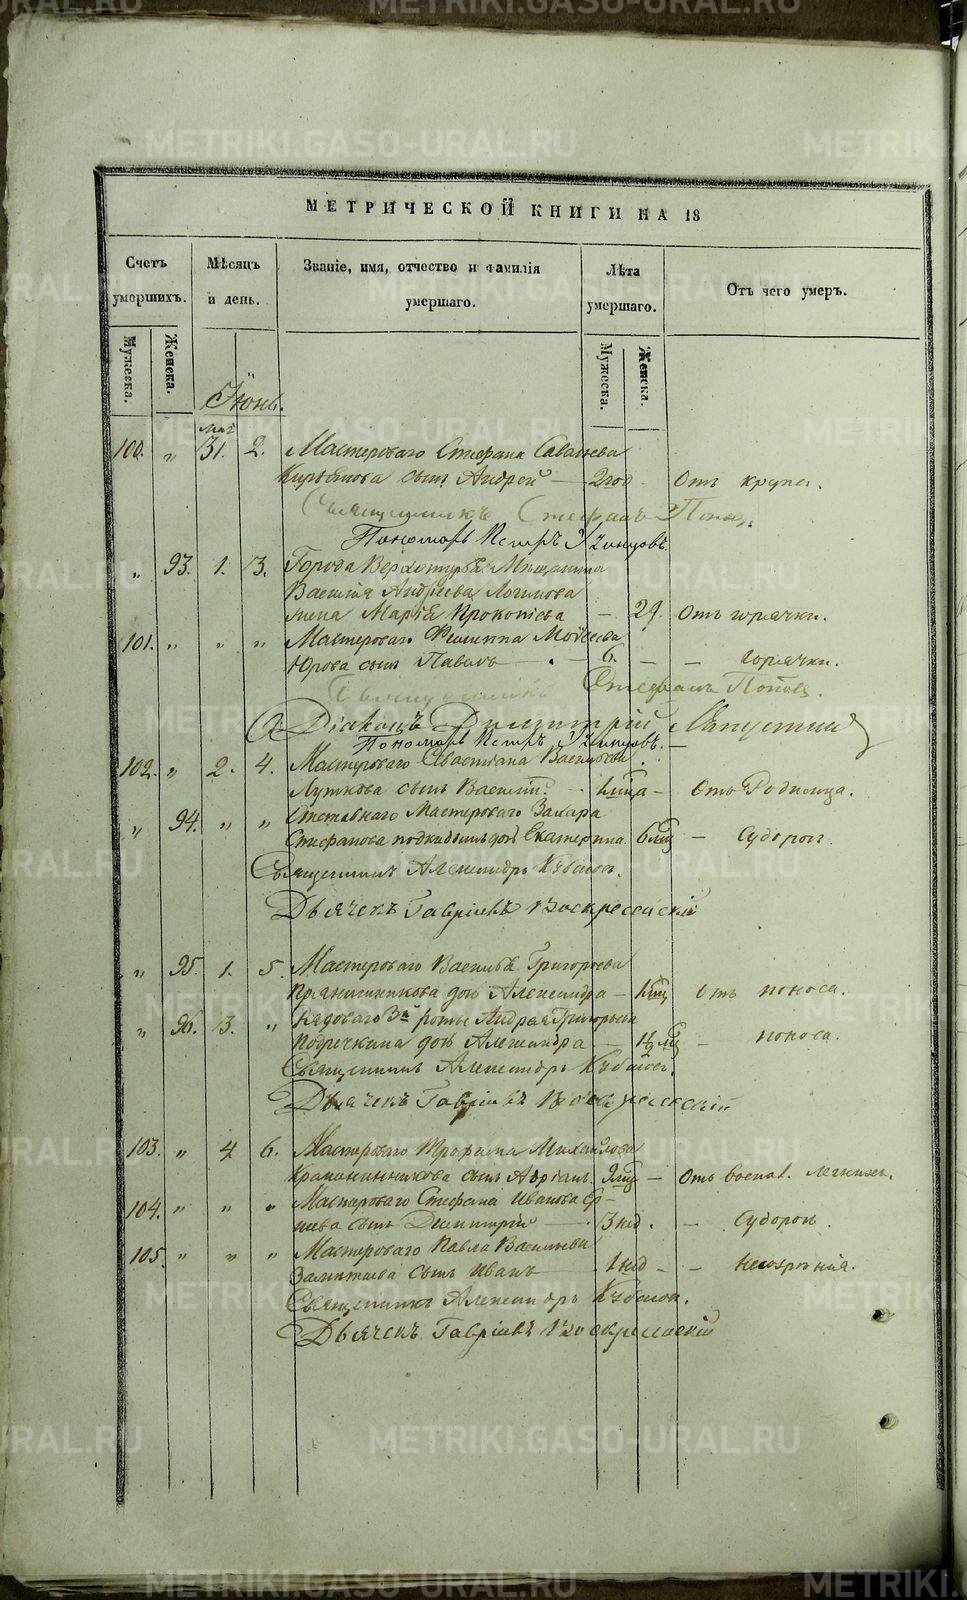 МЕТРИЧЕСКОЙ КНИГИ НА 18
Счетъ умершихъ.
Мѣсяцъ и день.
Званіе, имя, отчество и фамилія умершаго.
Лѣта умершаго.
Отъ чего умеръ.
Мужеска.
Женска.
Мужеска.
Женска.
Іюнь.
май
100. " 31. 2. Мастероваго Стефана Саватеева
сынъ Андрей — 2 год - Отъ крупа.
Священникъ Стефанъ Попов.
Пономарь Петръ
" 93. 1. 3. Города Верхотурья Мещанина
Василія Андреева Логинова
жена Марія Прокопіева — 29. Отъ горячки.
101. " " " Мастероваго Филиппа Моѵсеева
Юрова сынъ Павелъ — 6. — - горячки.
Священникъ Стефанъ Попов.
Діаконъ Димитрій
Пономарь Петръ
102. " 2. 4. Мастероваго Василіева
сынъ Василій. - Отъ Родимца.
" 94. " " Отставнаго Мастероваго Захара
Стефанова подкидышъ дочь Екатерина. 6 мц — Судорог.
Священникъ Александръ
Дьячекъ Гавріилъ Воскресенскій
" 95. 1. 5. Мастероваго Василья Григорьева
Пряничникова дочь Александра — Отъ поноса.
" 96. 3. " Рядоваго 3й роты Андрея Григорьева
дочь Александра — - поноса.
Священникъ Александръ
Дьячекъ Гавріилъ Воскресенскій
103. " 4. 6. Мастероваго Трофима Михайлова
сынъ Адріанъ. 9 мц — Отъ воспал. легких.
104. " " " Мастероваго Стефана Иванова
сынъ Димитрій — 3 нед. - Судорог.
105. " " " Мастероваго Павла Васильева
сынъ Иванъ — 1 нед - -
Священникъ Александръ
Дьячекъ Гавріилъ Воскресенскій
METRIKI.GASO-URAL.RU